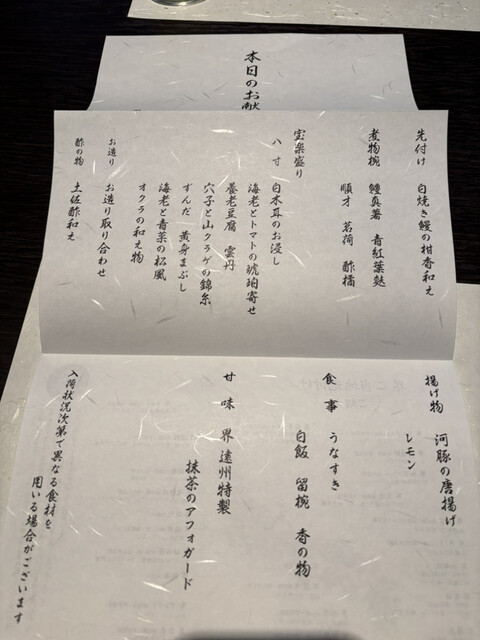 本日のお献
先付け 白焼き鰻の柑香和え
煮物椀 鱧真薯 青紅葉麩
順才 茗荷 酢橘
宝楽盛り
八寸 白木耳のお浸し
海老とトマトの琥珀寄せ
養老豆腐 雲丹
穴子と山クラゲの錦糸
ずんだ 黄身まぶし
海老と青菜の松風
オクラの和え物
お造り お造り取り合わせ
酢の物 土佐酢和え
揚げ物 河豚の唐揚げ
レモン
食事 うなすき
白飯 留椀 香の物
甘味 界 遠州特製
抹茶のアフォガード
入荷状況次第で異なる食材を
用いる場合がございます